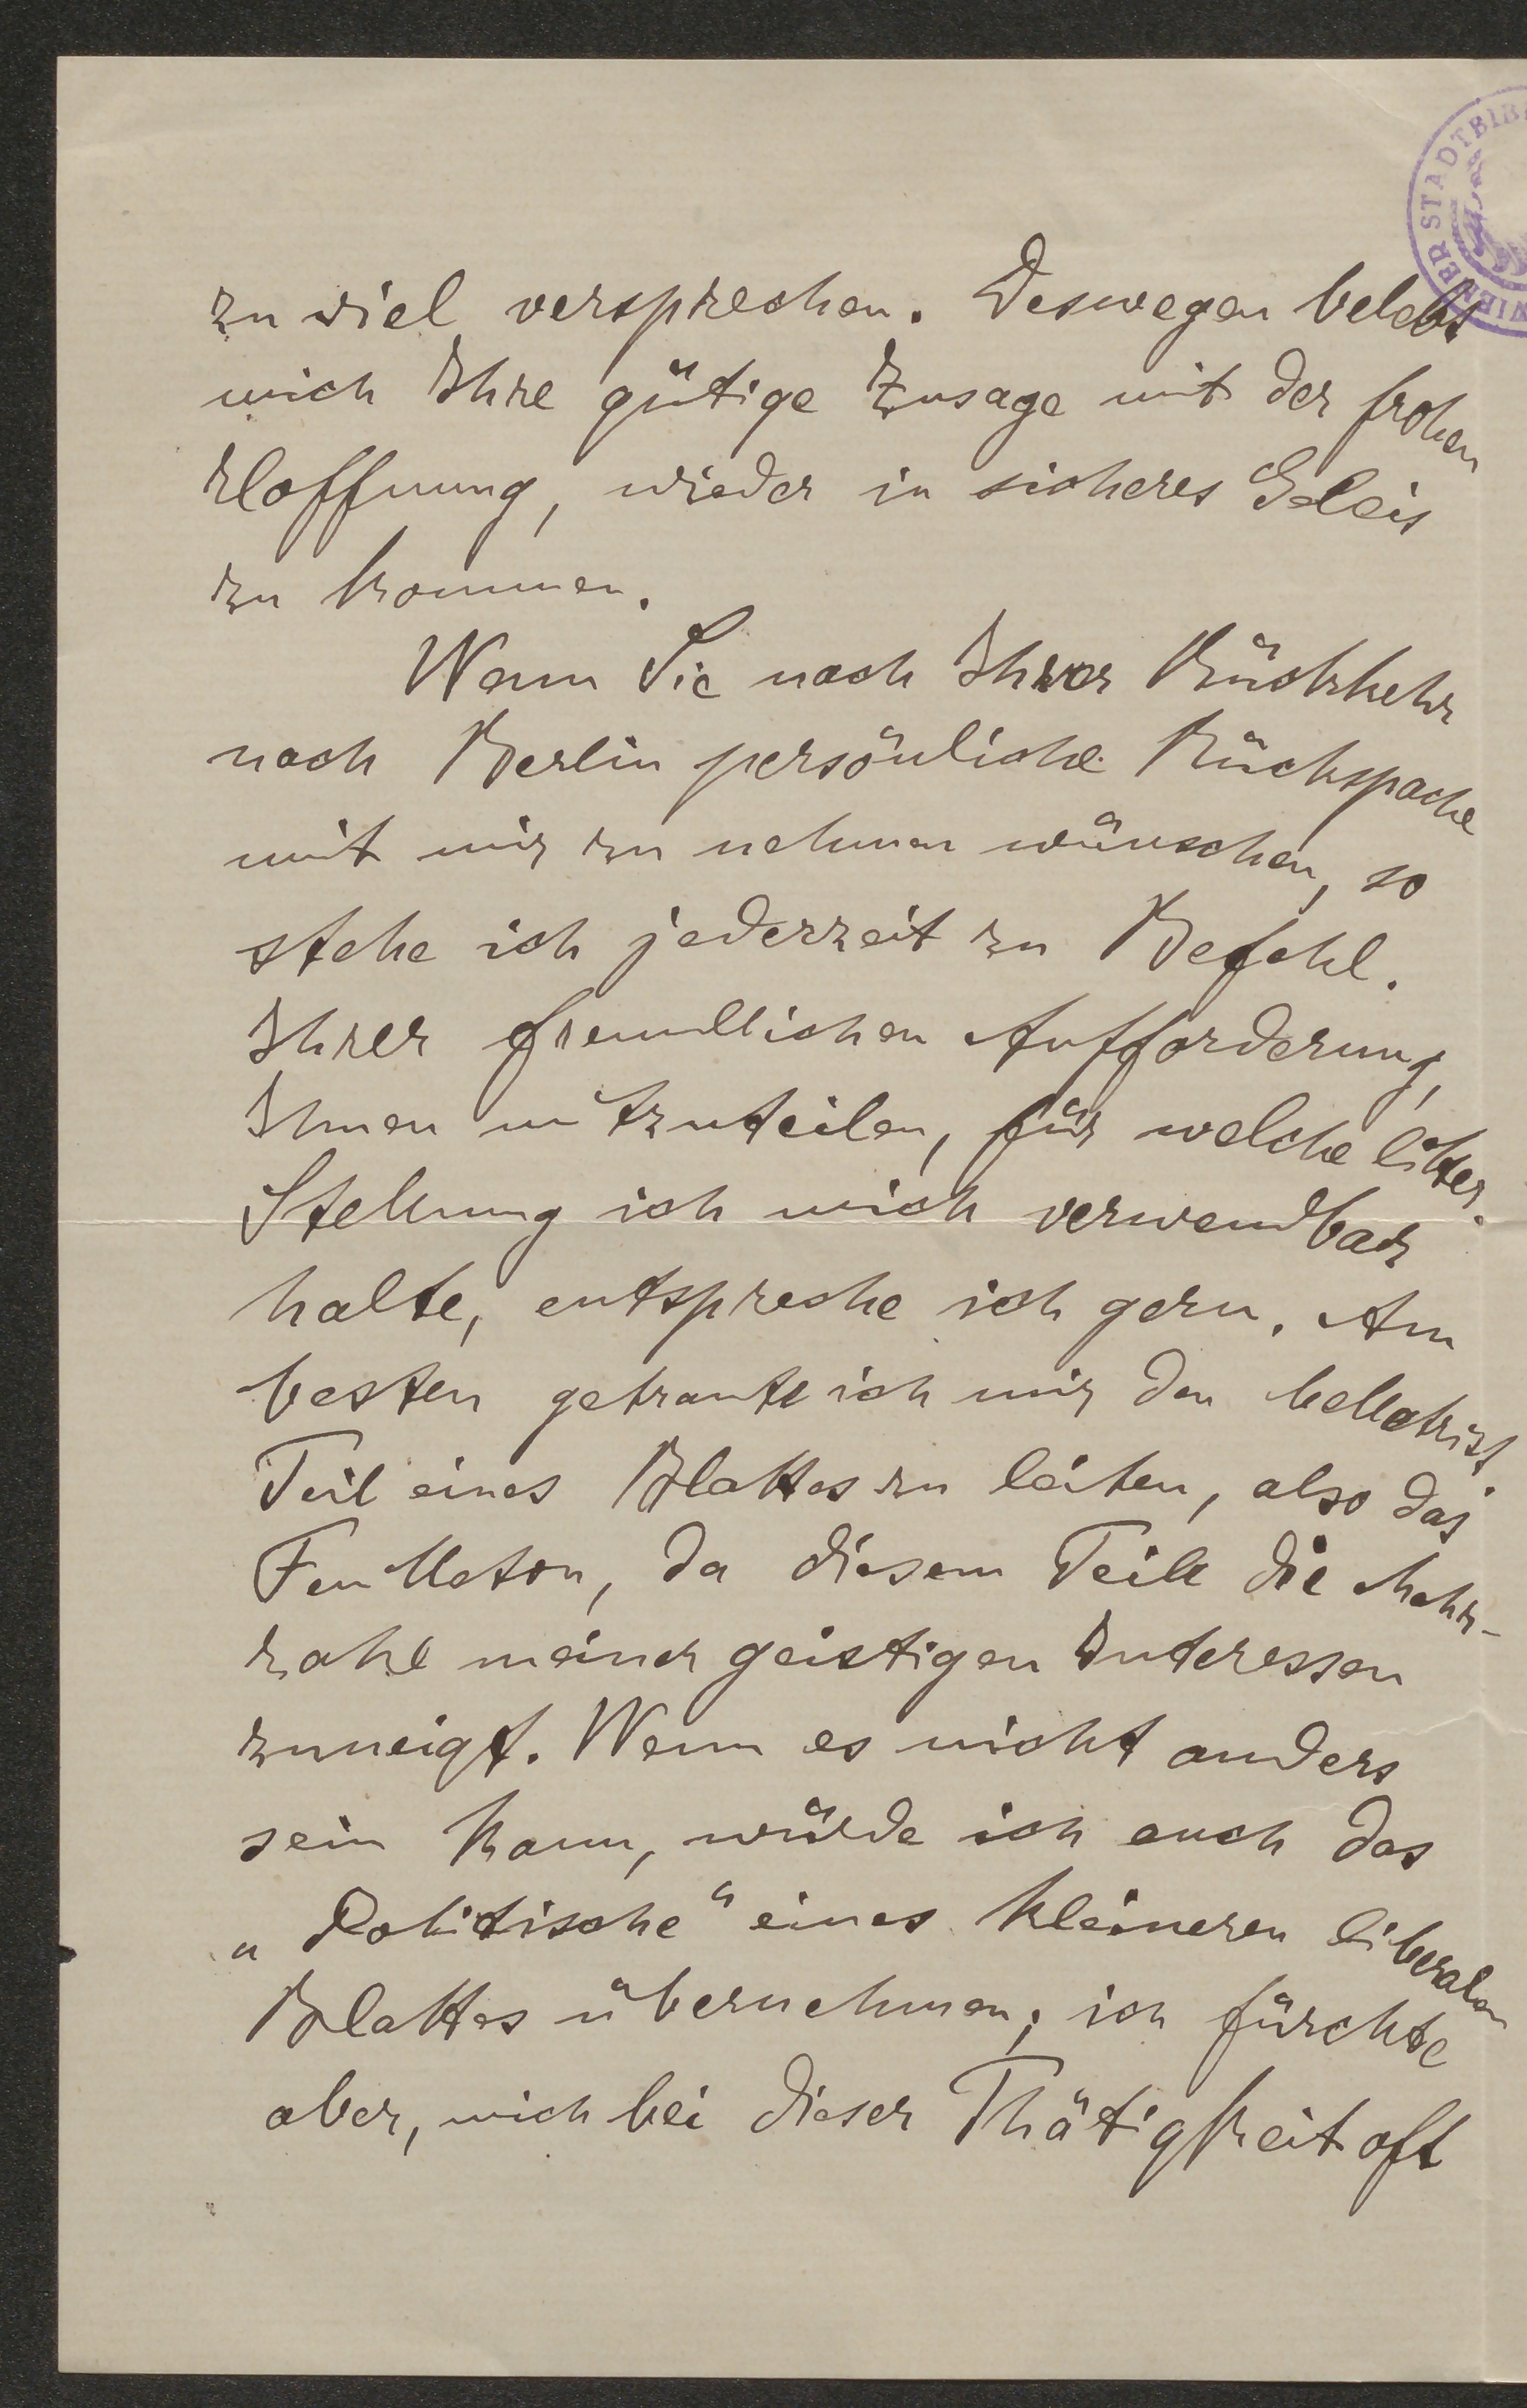 WIENER STADTBIB
zu viel versprechen. Deswegen belebt
mich Ihre gütige Zusage mit der frohen
Hoffnung, wieder in sicheres Geleis
zu kommen.
Wenn Sie nach Ihrer Rückkehr
nach Berlin persönliche Rückspache
mit mir zu nehmen wünschen, so
stehe ich jederzeit zu Befehl.
Ihrer freundlichen Aufforderung,
Ihnen mitzuteilen, für welche litter.
Stellung ich mich verwendbar
halte, entspreche ich gern. Am
besten getraute ich mir den belletrist.
Teil eines Blattes zu leiten, also das
Feuilleton, da diesem Teile die Mehr-
zahl meiner geistigen Interessen
zuneigt. Wenn es nicht anders
sein kann, würde ich auch das
„Politische“ eines kleineren liberalen
Blattes übernehmen; ich fürchte
aber, mich bei dieser Thätigkeit oft